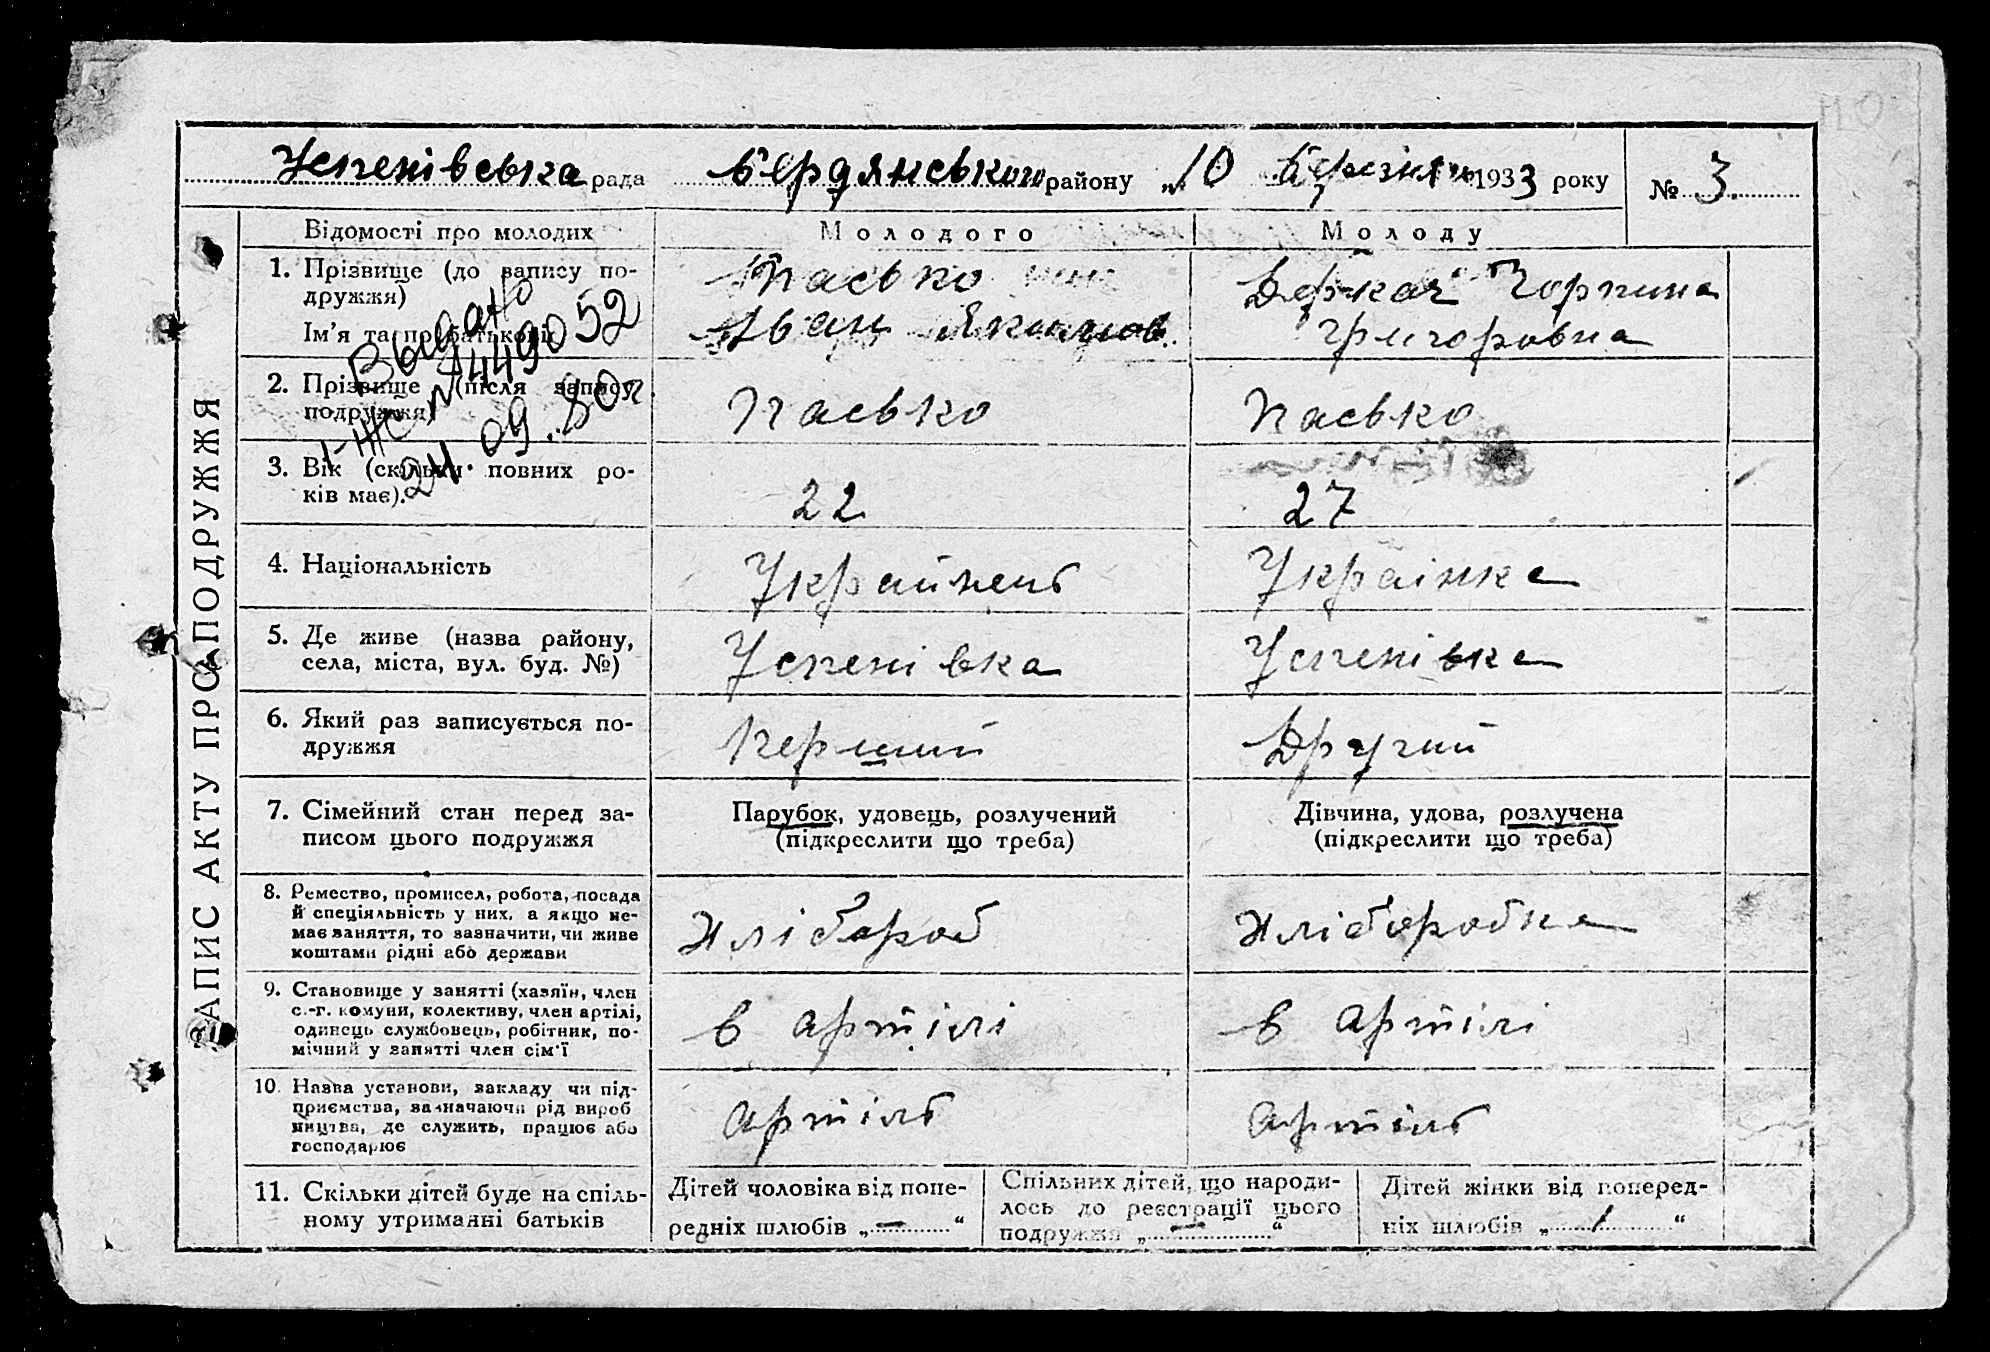 Успенівська рада Бердянського району „10 березня 1933 року № 3.
ЗАПИС АКТУ ПРО ПОДРУЖЖЯ
Відомості про молодих
Молодого
Молоду
1. Прізвище (до запису по-
дружжя)
Ім'я та по батькові
Пасько
Іван Якимов.
Деркач Горпина
Григоровна
Выдано
I-ЖС № 449052
24.09.80г.
2. Прізвище (після запису
подружжя)
Пасько
Пасько
3. Вік (скільки повних ро-
ків має).
22
27
4. Національність
Українець
Українка
5. Де живе (назва району,
села, міста, вул. буд. №)
Успенівка
Успенівка
6. Який раз записується по-
дружжя
Перший
Другий
7. Сімейний стан перед за-
писом цього подружжя
Парубок, удовець, розлучений
(підкреслити що треба)
Дівчина, удова, розлучена
(підкреслити що треба)
8. Ремество, промисел, робота, посада
й спеціяльність у них, а якщо не-
має заняття, то зазначити, чи живе
коштами рідні або держави
Хлібороб
Хлiборобка
9. Становище у занятті (хазяїн, член
с.-г. комуни, колективу, член артілі,
одинець службовець, робітник, по-
мічний у занятті член сім'ї
в артілі
в артілі
10. Назва установи, закладу чи під-
приємства, зазначаючи рід вироб
ництва, де служить, працює або
господарює
Артіль
Артіль
11. Скільки дітей буде на спіль-
ному утриманні батьків
Дітей чоловіка від попе-
редніх шлюбів „—“
Спільних дітей, що народи-
лось до реєстрації цього
подружжя „—“
Дітей жінки від поперед-
ніх шлюбів „1“